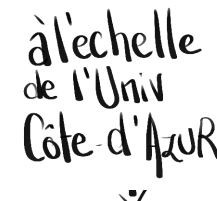 à l'echelle
de l'Univ
Côte-d'AzUR